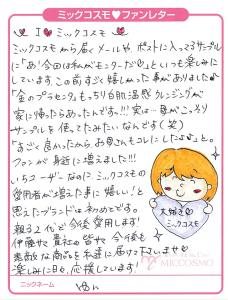 ミックコスモ♥ファンレター
♥ I ♡ ミックコスモ ♥
ミックコスモから届くメールや、ポストに入ってるサンプル
に「あ!今回は私がモニターだ◎」といつも楽しみに
しています♡この前すごく嬉しかった事がありました♪
「金のプラセンタ」もっちり白肌温感クレンジングが
家に帰ったらあったんです!!!実は…母がこっそり
サンプルを使ってたみたいなんです(笑)
「すごく良かったからお母さんもコレにしたよ♪」と。
ファンが身近に増えました!!!
いちユーザーなのに、ミックコスモの
愛用者が増えた事に嬉しい!と
思えたブランドは初めてです。
親子2代で今後愛用します!
貴社の皆々 今後も
素敵な商品を私達に届けて下さいませ♡
楽しみに日々、応援しています!
大好き♡
ミックコスモ
MICCOSMO
ニックネーム
ゆん